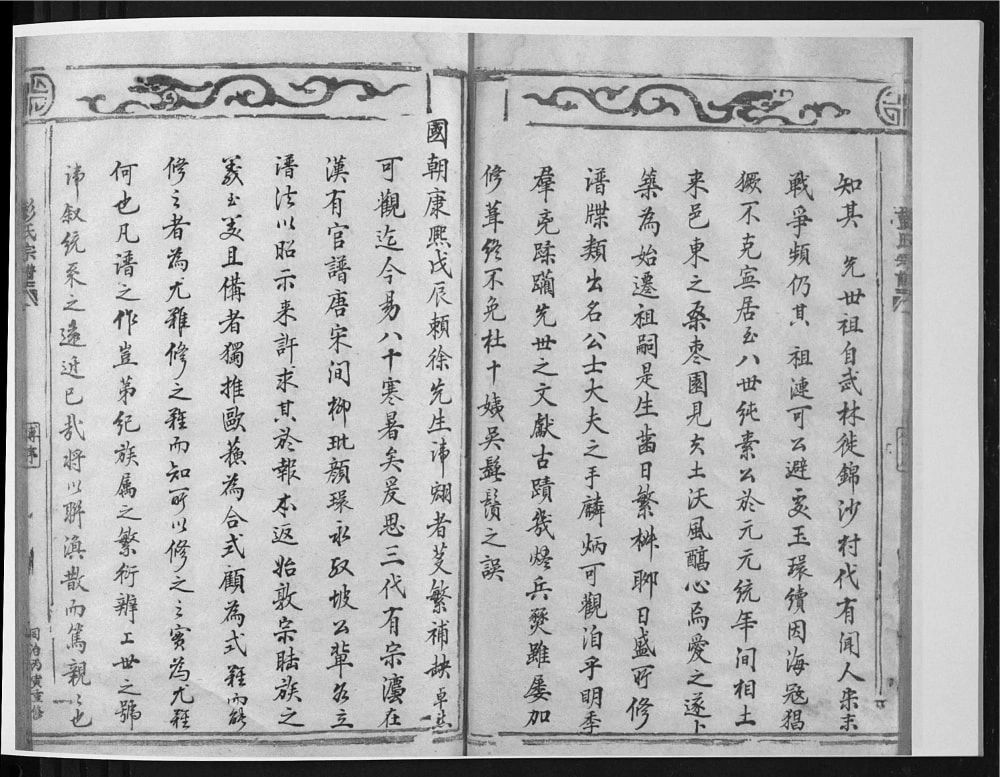 知其 先世祖自武林徙錦沙村代有聞人宋末
戰爭頻仍其 祖漣可公避亥玉環續因海冦猖
獗不克寍居至八世純素公於元元統年間相土
来邑東之桑枣園見亥土沃風醕心焉愛之遂卜
築為始遷祖嗣是生齒日繁椒聊日盛所修
譜牒類出名公士大夫之手麟炳可觀洎乎明季
羣兇蹂躪先世之文獻古蹟幾烬兵燹雖屡加
修葺終不免杜十姨吳髭鬚之誤
國朝康熙戊辰頼徐先生諱翃者芟繁補缺卓然
可觀迄今易八十寒暑矣爰思三代有宗灋在
漢有官譜唐宋间柳玭顔璟永叔坡公軰各立
譜法以昭示来許求其於報本返始敦宗睦族之
義至美且備者獨推歐蘓為合式顧為式難而能
修之者為尤難修之難而知所以修之之實為尤難
何也凡譜之作豈第纪族属之繁衍辨工世之號
諱叙統系之遠近已哉将以聨渙散而篤親之也
彭氏宗譜
同治丙寅重修